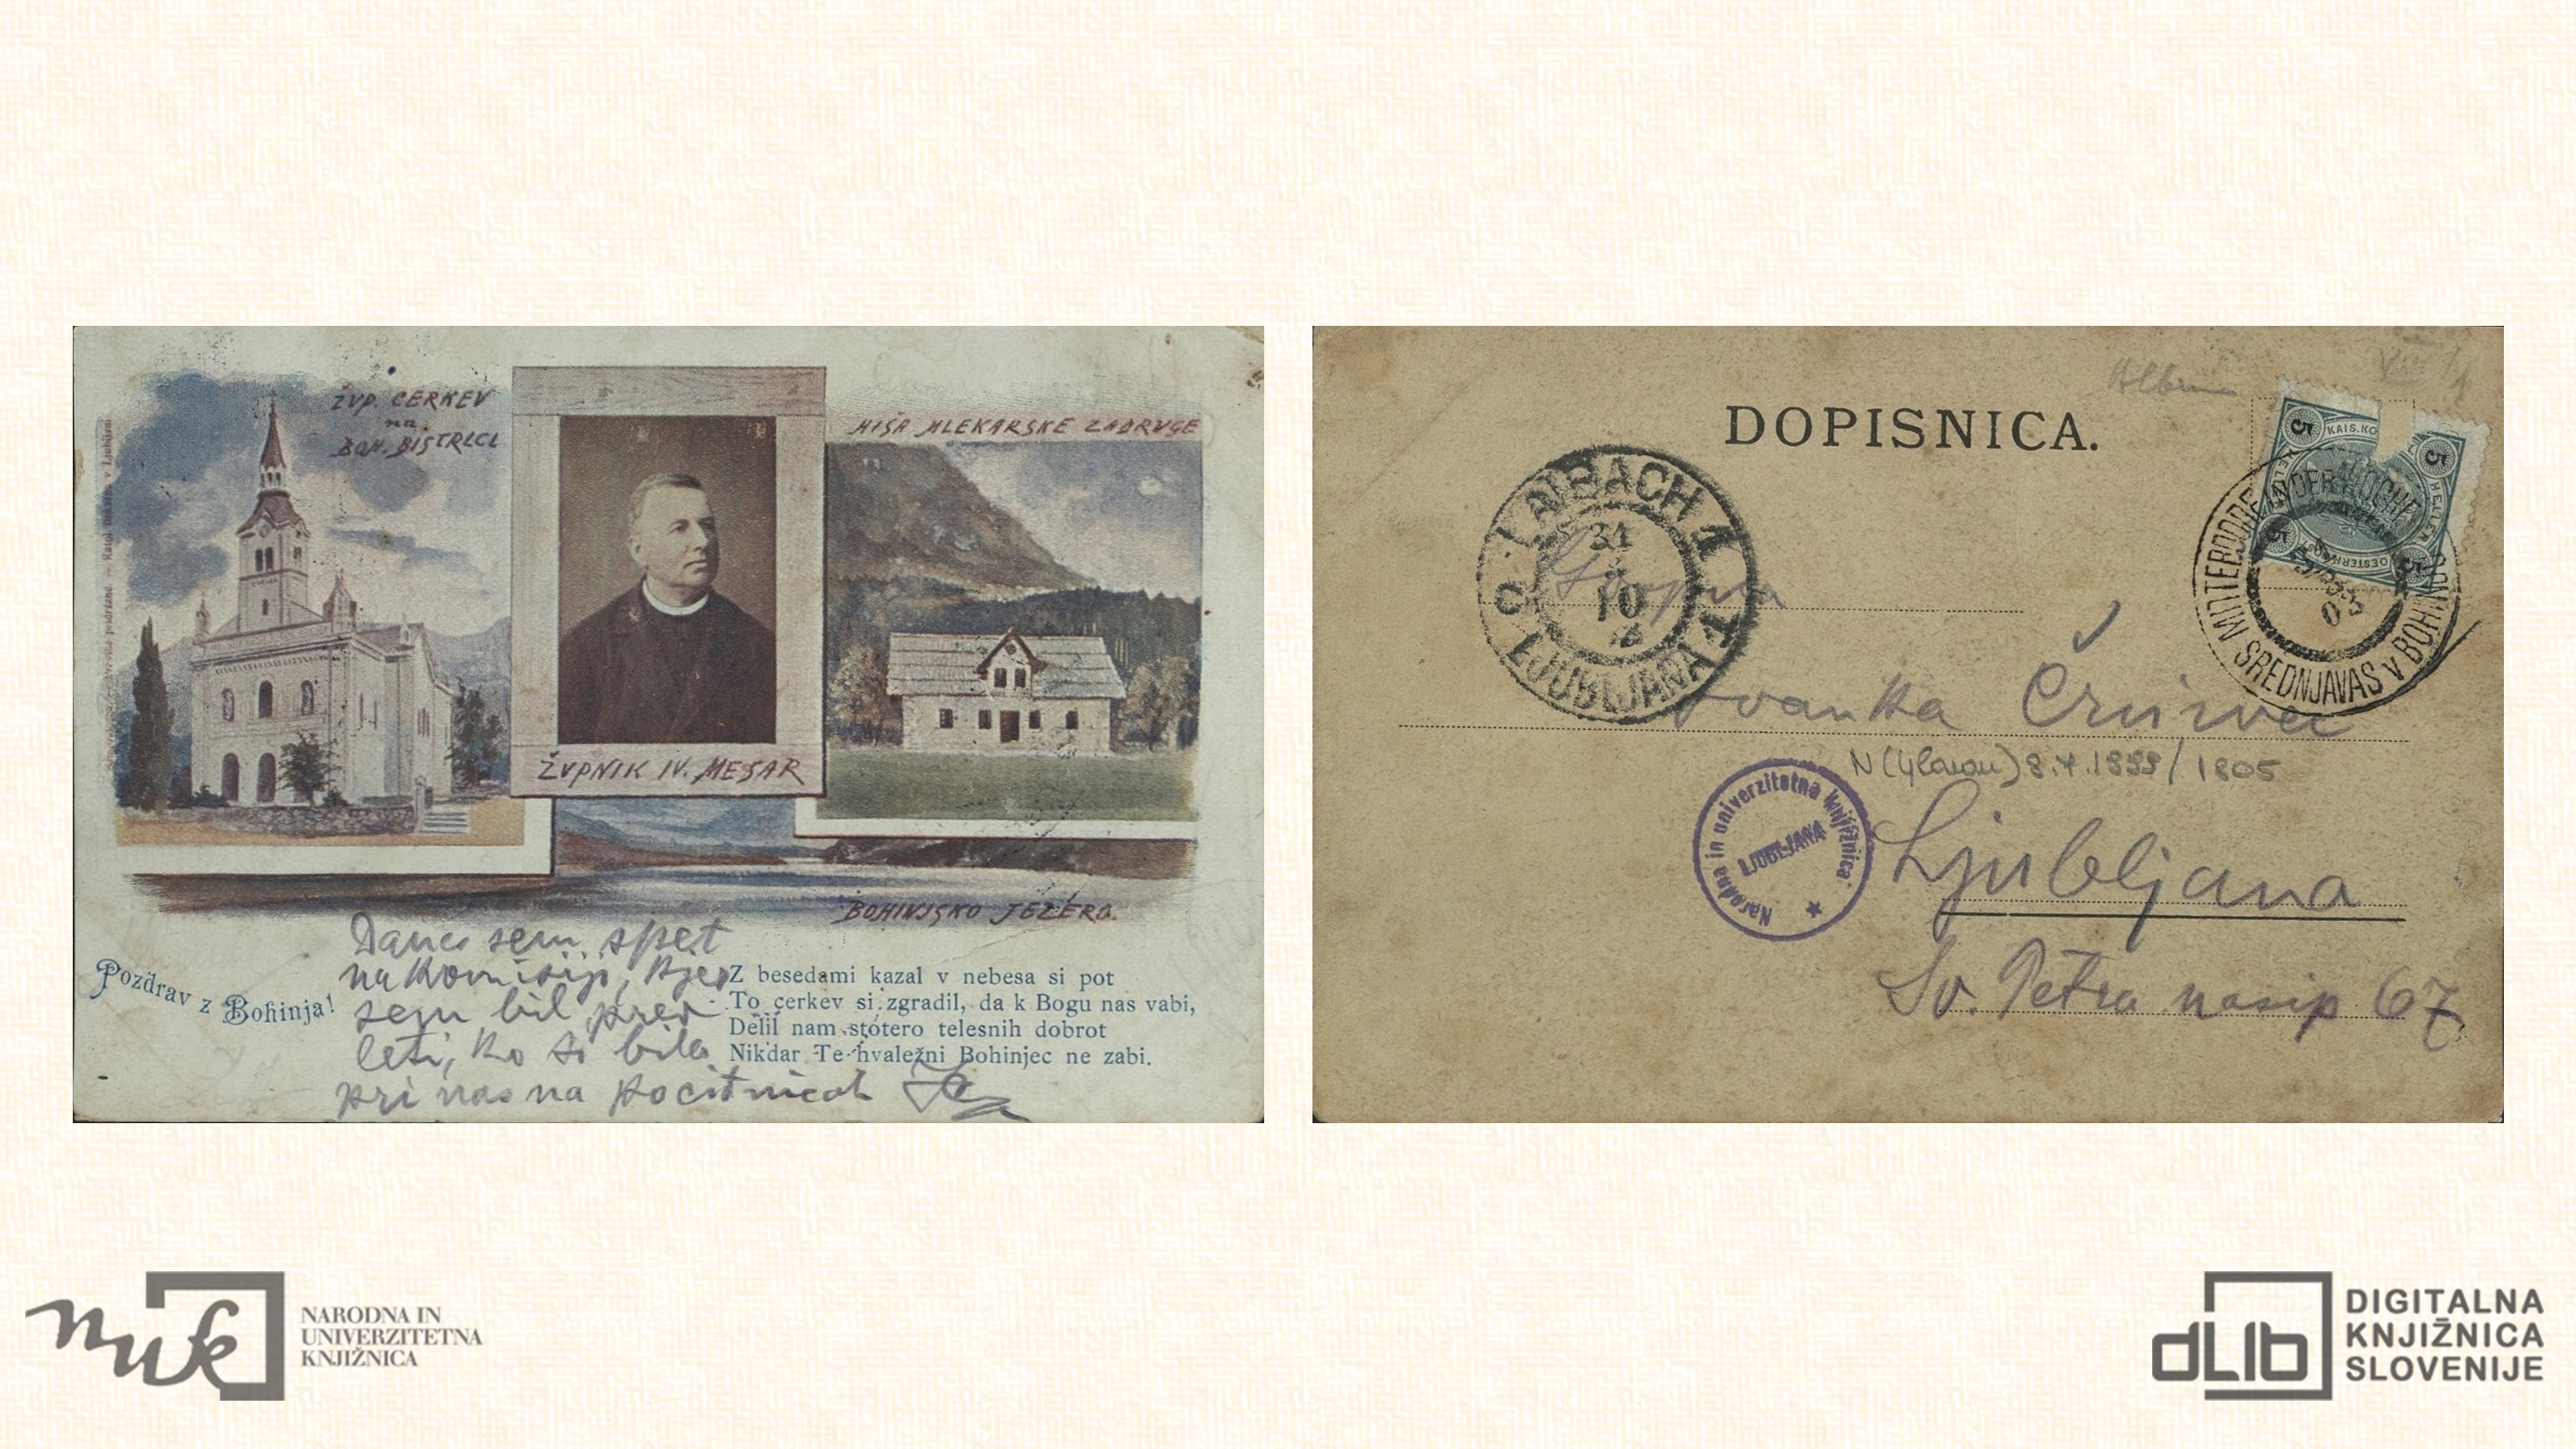 ŽUP. CERKEV
na
BOH. BISTRICI
ŽUPNIK IV. MESAR
HIŠA MLEKARSKE ZADRUGE
BOHINJSKO JEZERO.
Pozdrav z Bohinja!
Danes sem spet
na komisiji, kjer
sem bil pred
leti, ko si bila
pri nas na počitnicah
Z besedami kazal v nebesa si pot
To cerkev si zgradil, da k Bogu nas vabi,
Delil nam stotero telesnih dobrot
Nikdar Te hvaležni Bohinjec ne zabi.
DOPISNICA.
Album
LAIBACH
31
10
LJUBLJANA
KAIS.KO
5
5
5
5
HELLER
MITTERDORF IN DER WOCHEIN
03
SREDNJAVAS V BOHINJU
Gospa
Ivanka
8.4.1959/1805
Narodna in univerzitetna knjižnica
LJUBLJANA
Ljubljana
Sv. Petra nasip 67
nuk
NARODNA IN
UNIVERZITETNA
KNJIŽNICA
dLib
DIGITALNA
KNJIŽNICA
SLOVENIJE